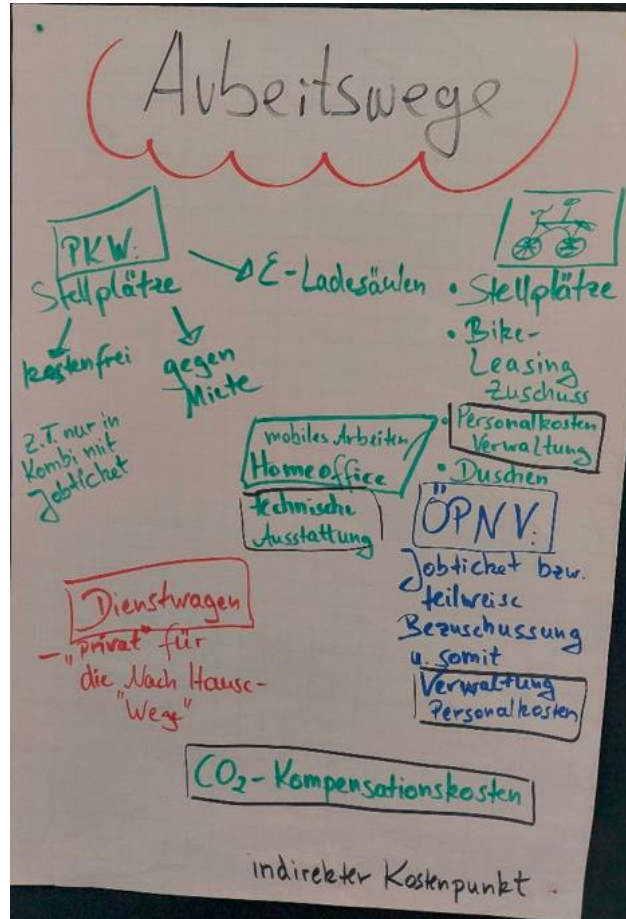 Arbeitswege
PKW:
Stellplätze
kostenfrei
gegen
Miete
Z.T. nur in
Kombi mit
Jobticket
E-Ladesäulen
• Stellplätze
• Bike-
Leasing
Zuschuss
• Personalkosten
Verwaltung
• Duschen
mobiles Arbeiten
Homeoffice
technische
Ausstattung
ÖPNV:
Jobticket bzw.
teilweise
Bezuschussung
u. somit
Verwaltung
Personalkosten
Dienstwagen
– „privat" für
die Nach Hause-
"Wege"
CO₂-Kompensationskosten
indirekter Kostenpunkt